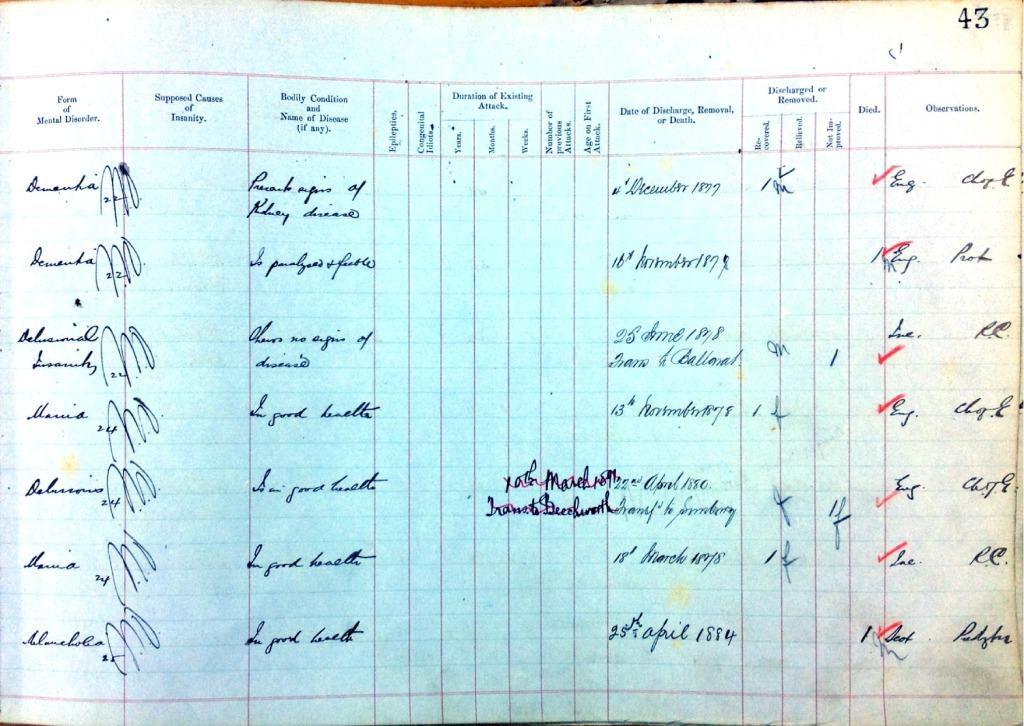 43
Form of Mental Disorder.
Supposed Causes of Insanity.
Bodily Condition and Name of Disease (if any).
Epileptics.
Congenital Idiots.
Duration of Existing Attack.
Years.
Months.
Weeks.
Number of previous Attacks.
Age on First Attack.
Date of Discharge, Removal, or Death.
Discharged or Removed.
Recovered.
Relieved.
Not Improved.
Died.
Observations.
Dementia 22 Presents signs of December 1877 1 m Eng. Ch of E
Kidney disease
Dementia 22 Is paralysed & feeble November 1877 1 m Eng. Prot
Delusional Shews no signs of 25 June 1878 Ire. R.C.
Insanity 22 disease Trans to Ballarat. m 1
Mania 24 In good health 13th November 1878 1 f Eng. Ch of E
Delusions 24 Is in good health March 22nd April 1880. Eng. Ch of E
Trans to Beechworth Transf'd to Sunbury f 1 f
Mania 24 In good health 18th March 1878 1 f Ire. R.C.
Melancholia 25 In good health 25th April 1884 1 m Scot